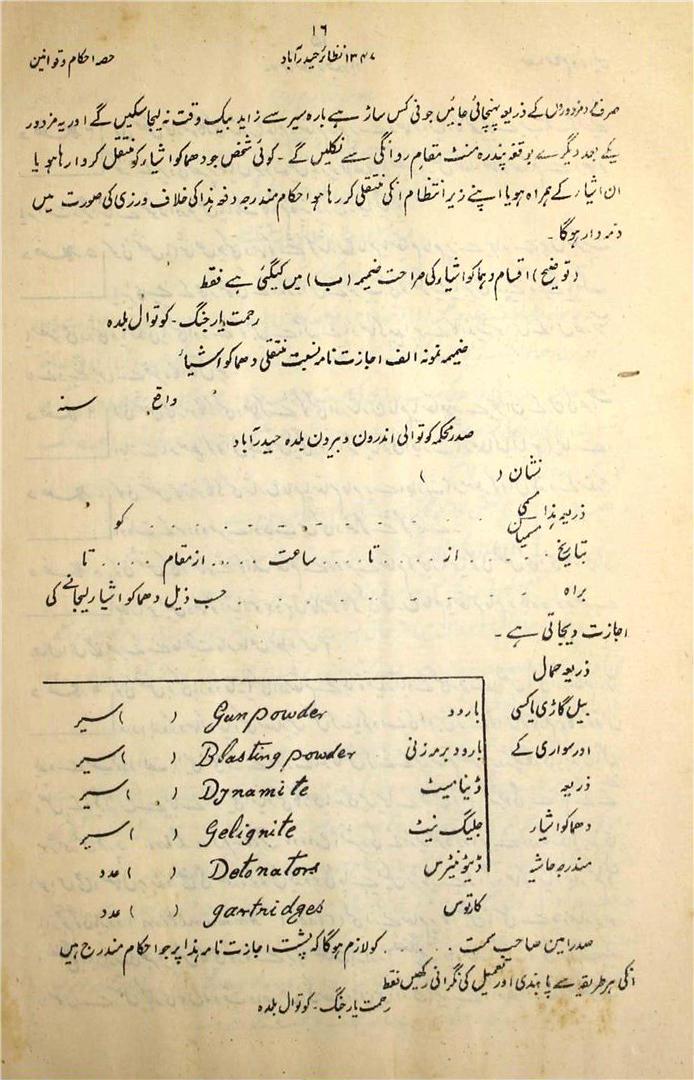 ۱۶
حصہ احکام و قوانین ۱۳۴۷ نظائر حیدرآباد
صرف مزدوروں کے ذریعہ پہنچائی جائیں جو فی کس ساڑہے بارہ سیر سے زاید بیک وقت نہ لیجا سکیں گے اور یہ مزدور
یکے بعد دیگرے بوقفہ پندرہ منٹ مقام روانگی سے نکلیں گے ۔ کوئی شخص جو دھماکو اشیار کو منتقل کروا رہا ہو یا
ان اشیار کے ہمراہ ہو یا اپنے زیر انتظام انکی منتقلی کر رہا ہو احکام مندرجہ دفعہ ہذا کی خلاف ورزی کی صورت میں
ذمہ دار ہوگا ۔
(توضیح) اقسام دہماکو اشیاء کی صراحت ضمیمہ (ب) میں کیگئی ہے فقط
رحمت یار جنگ ۔ کوتوال بلدہ
ضمیمہ نمونہ الف اجازت نامہ نسبت منتقلی دھماکو اشیاء
واقع سنہ
صدر محکمہ کوتوالی اندرون و بیرون بلدہ حیدرآباد
نشان ( )
ذریعہ ہذا مسمی مسمیان . . . . . . . . . کو
بتاریخ . . . . . از . . . . . تا . . . . ساعت . . . . . از مقام . . . . . تا
براہ . . . . . . . . . حسب ذیل دھماکو اشیار لیجانے کی
اجازت دیجاتی ہے ۔
ذریعہ حمال
بیل گاڑی یا کسی بارود Gunpowder ( ) سیر
اور سواری کے بارود برمزنی Blasting powder ( ) سیر
ذریعہ ڈینامیٹ Dynamite ( ) سیر
دھماکو اشیار جلیگ نیٹ Gelignite ( ) سیر
مندرجہ حاشیہ ڈیٹونیٹرس Detonators ( ) عدد
کارتوس gartridges ( ) عدد
صدر امین صاحب سمت . . . . . کو لازم ہوگا کہ پشت اجازت نامہ ہذا پر جو احکام مندرج ہیں
انکی ہر طریقہ سے پابندی اور تعمیل کی نگرانی رکھیں فقط
رحمت یار جنگ ۔ کوتوال بلدہ